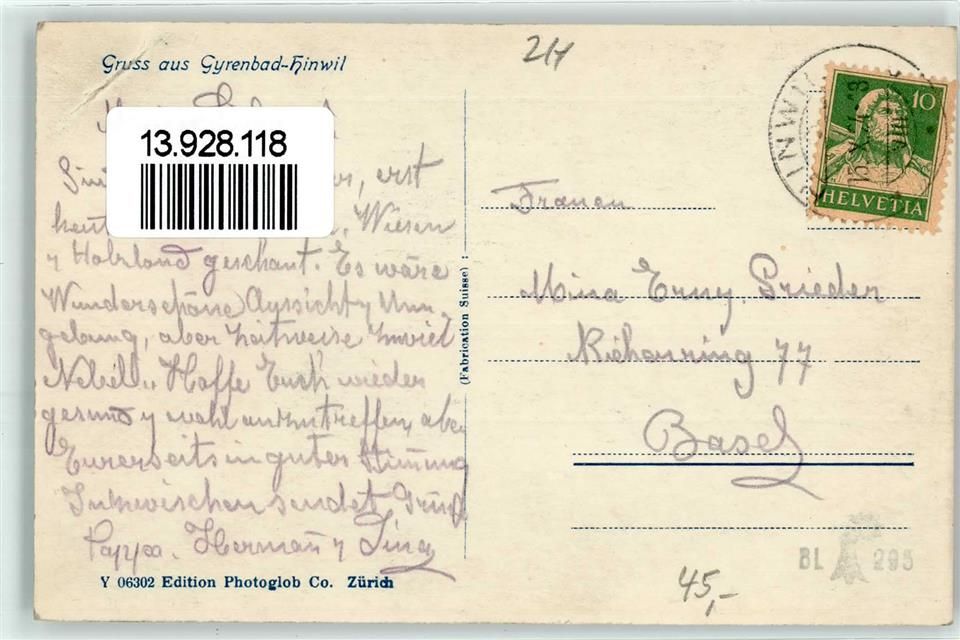 Gruss aus Gyrenbad-Hinwil
24
13.928.118
erst
heut Wiesen
y Holzland geschaut. Es wäre
Wunderschöne Aussicht y Um¬
gebung, aber zeitweise zuviel
Nebel. Hoffe Euch wieder
gesund y wohl anzutreffen, aber
Eurerseits in guter Stimmung
Inzwischen sendet Gruß
Pappa. Herman y Lina
Y 06302 Edition Photoglob Co. Zürich
(Fabrication Suisse)
HINWIL
10
HELVETIA
Frauen
Mina Erny. Prieder
Riehenring 77
Basel
BL 295
45,-